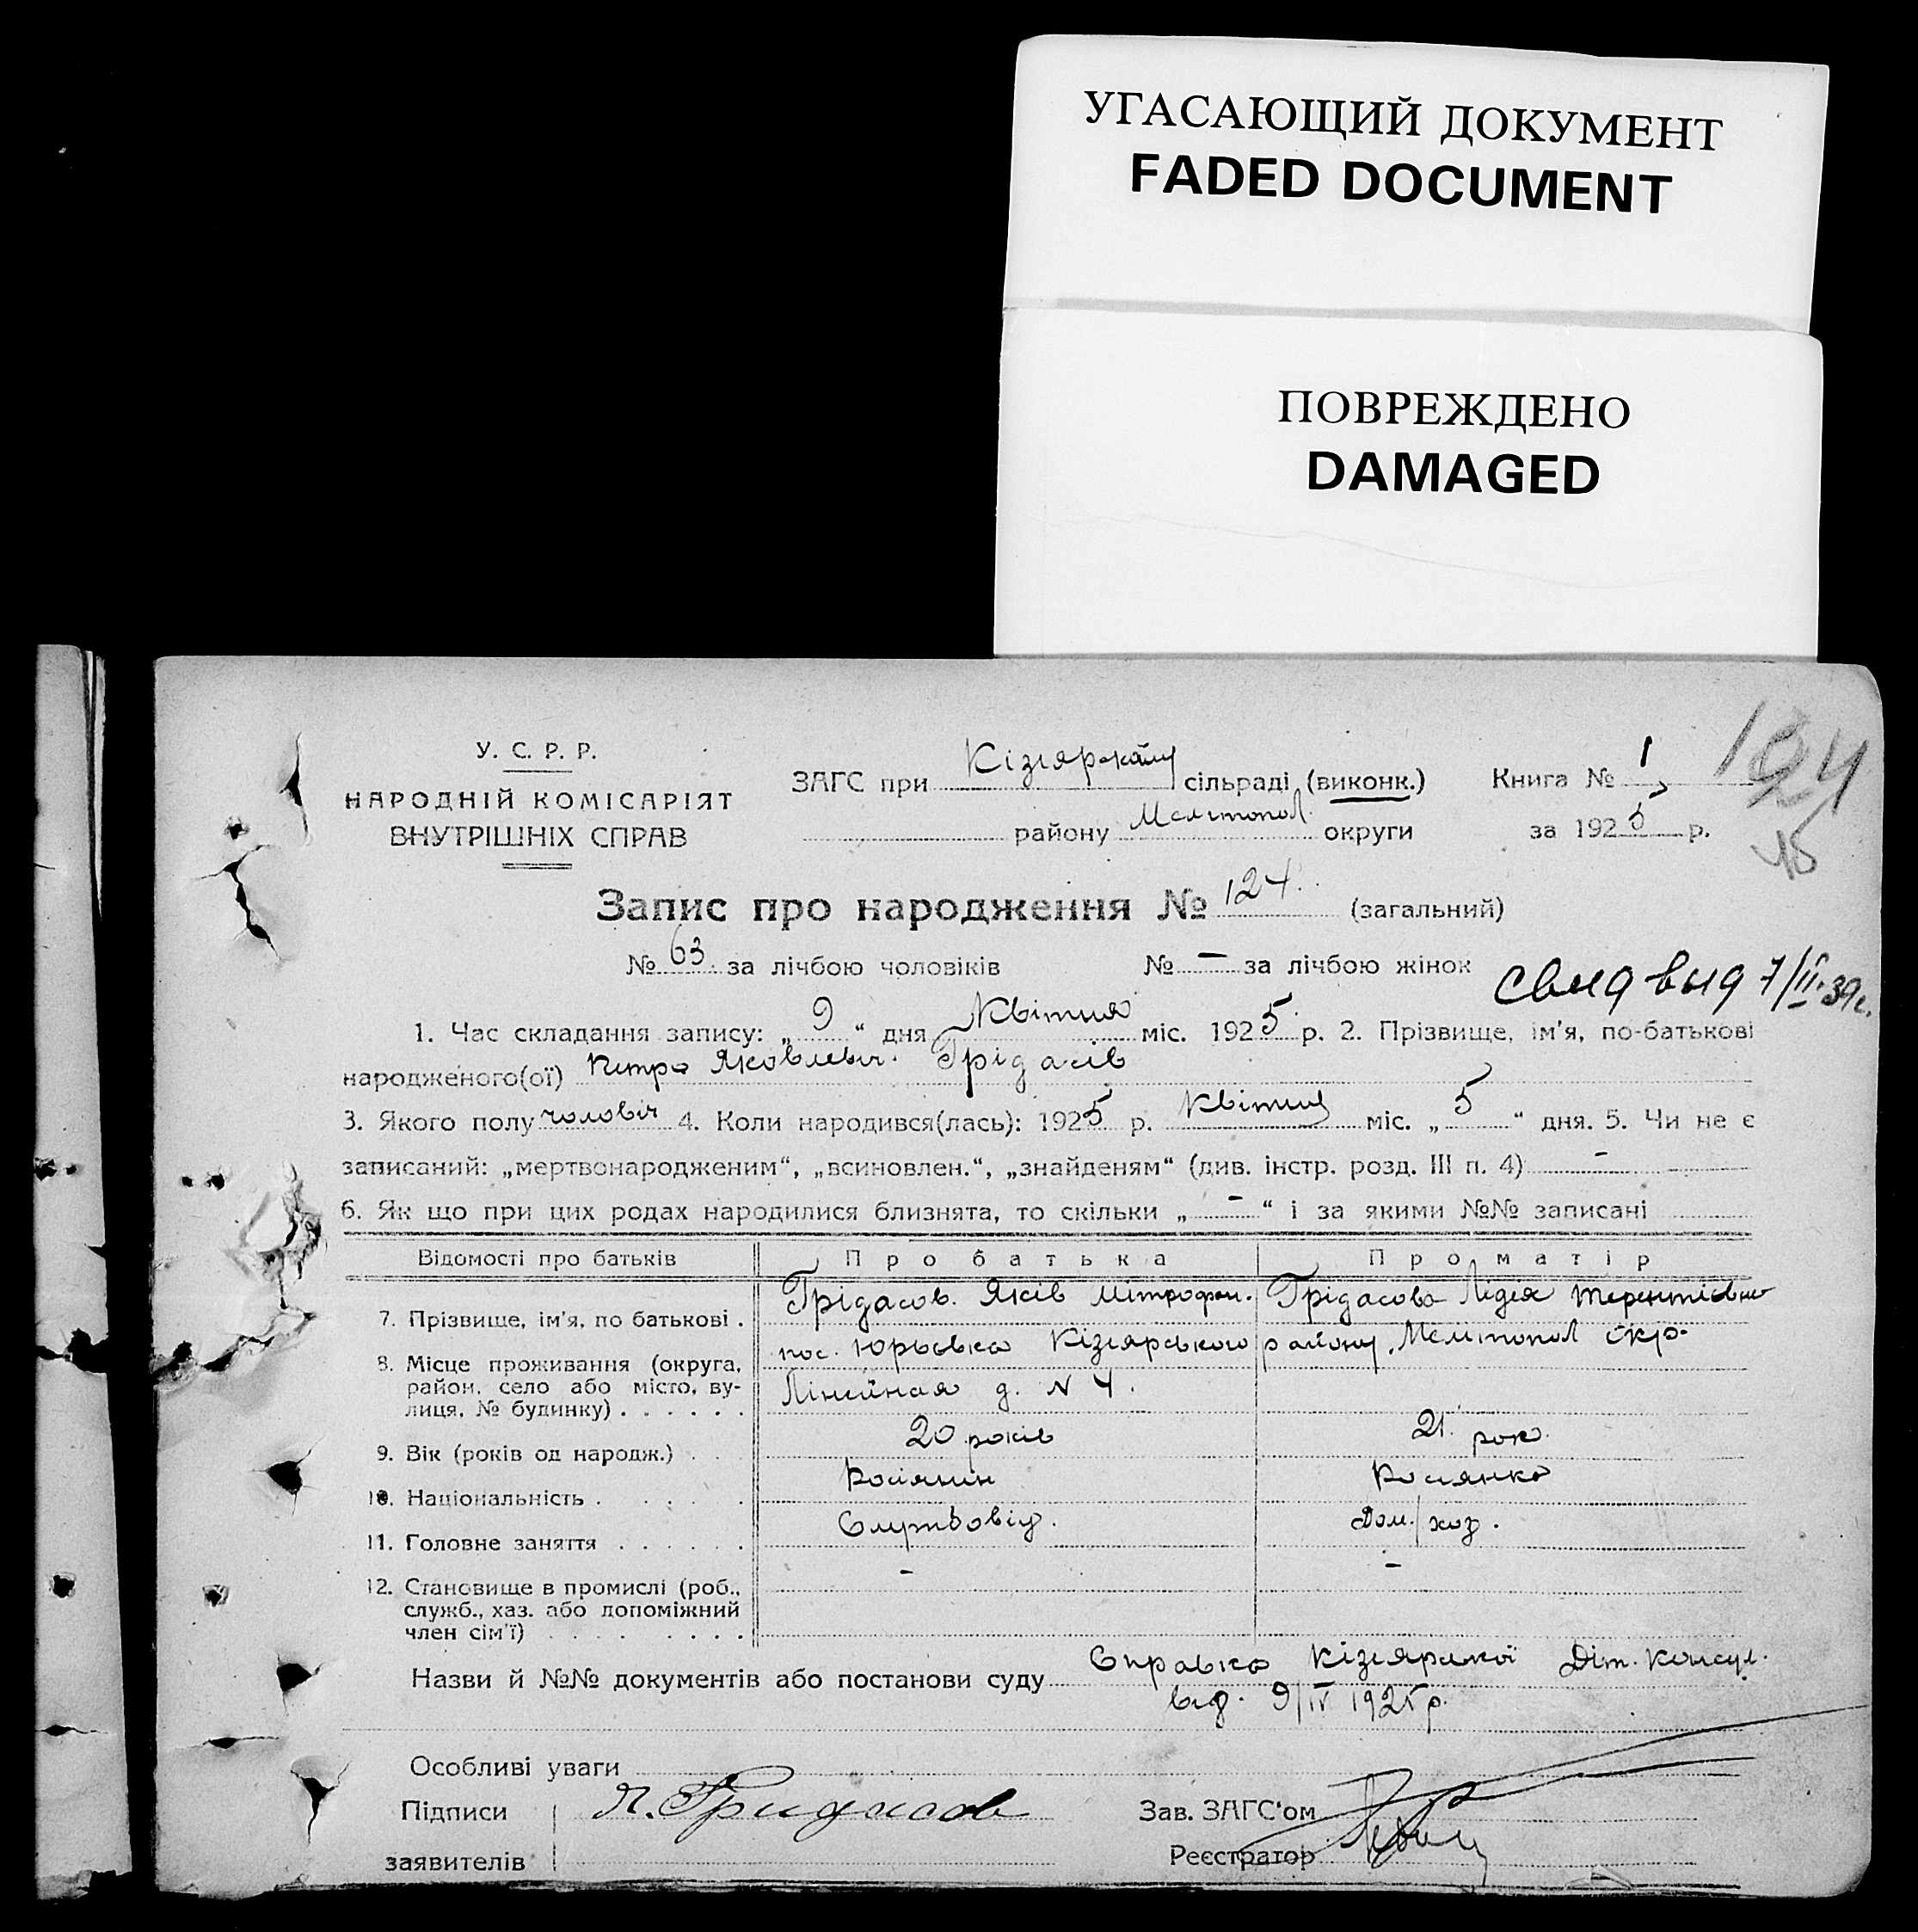 УГАСАЮЩИЙ ДОКУМЕНТ
FADED DOCUMENT
ПОВРЕЖДЕНО
DAMAGED
У. С. Р. Р.
НАРОДНІЙ КОМІСАРІЯТ
ВНУТРІШНІХ СПРАВ
ЗАГС при Кізіярському сільраді (виконк.)
району Мелітопол. округи
Книга № 1
за 1925 р.
124
Запис про народження № 124. (загальний)
№ 63 за лічбою чоловіків № – за лічбою жінок
свид выд 7/II-39г.
1. Час складання запису: „ 9 “ дня Квітня міс. 1925 р. 2. Прізвище, ім'я, по-батькові
народженого(ої) Петро Яковлевич Грідасів
3. Якого полу чоловіч 4. Коли народився(лась): 1925 р. Квітня міс. „ 5 “ дня. 5. Чи не є
записаний: „мертвонародженим“, „всиновлен.“, „знайденям“ (див. інстр. розд. III п. 4) –
6. Як що при цих родах народилися близнята, то скільки „ – “ і за якими №№ записані
Відомості про батьків Про батька Про матір
7. Прізвище, ім'я, по батькові . Грідасов Яків Мітрофан. Грідасова Лідія Терентієвна
8. Місце проживання (округа, район, село або місто, вулиця, № будинку) . . . . . . пос. Юрьовка Кізіярського району, Мелітопол окр.
Лінейная д. N 4.
9. Вік (років од народж.) . . 20 років 21 рок.
10. Національність . . . . . Росіянин Росіянка
11. Головне заняття . . . . . . Службовіц. Дом. хоз.
12. Становище в промислі (роб., – –
служб., хаз. або допоміжний
член сім'ї) . . . . . . . .
Назви й №№ документів або постанови суду Справка Кізіярської Діт. Консул.
від. 9/IV 1925 р.
Особливі уваги
Підписи Я. Гридасов Зав. ЗАГС'ом
заявителів Реєстратор